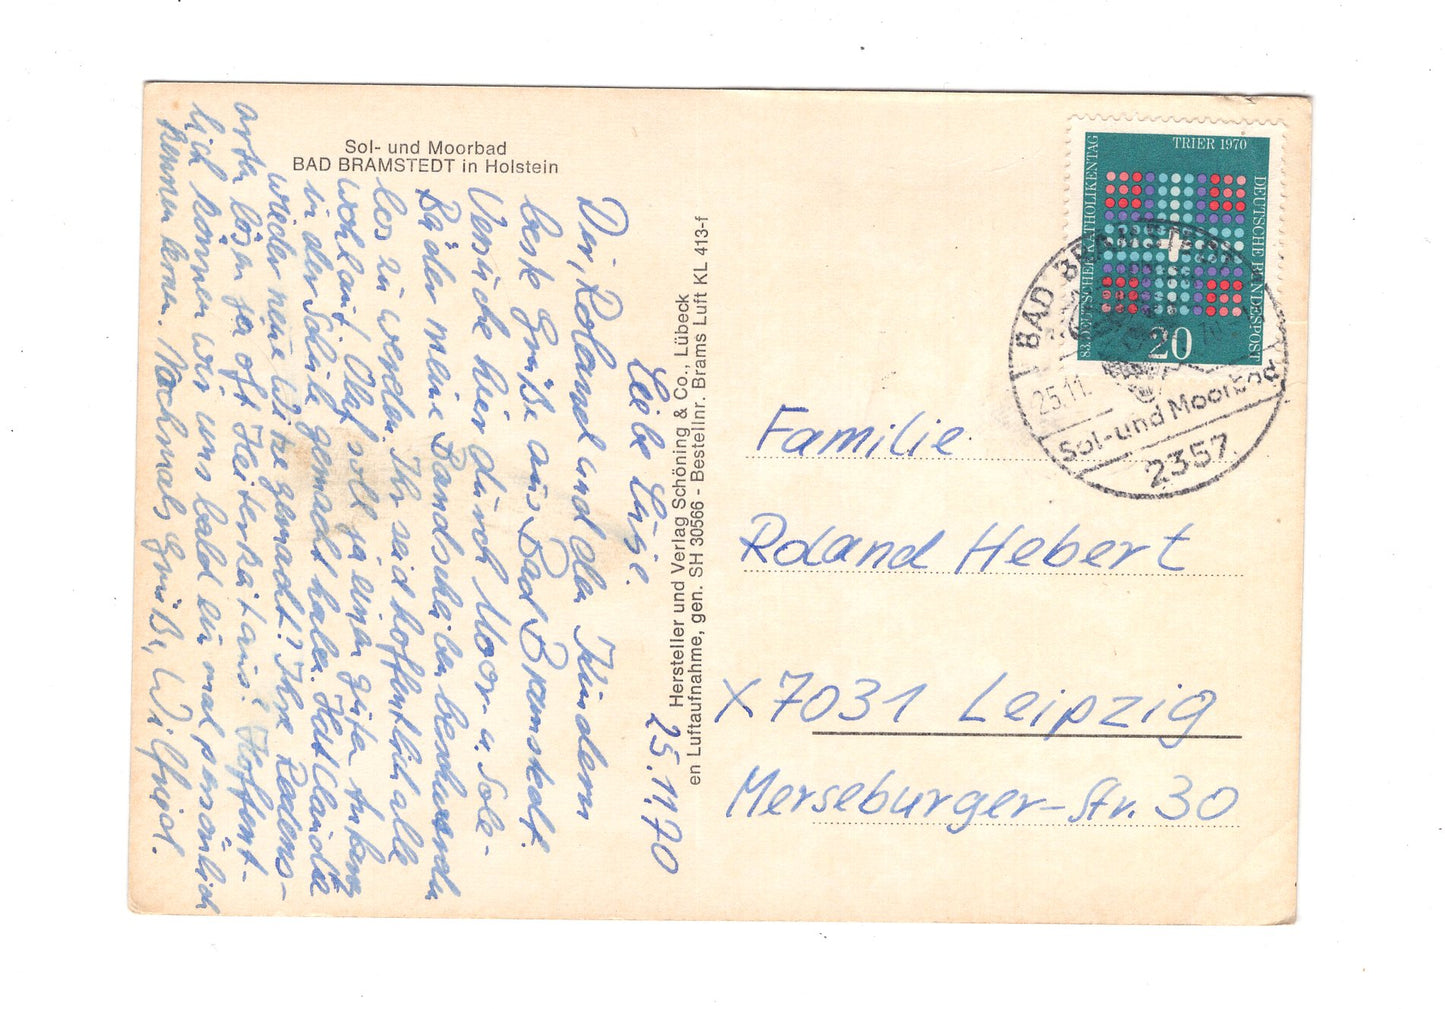 Sol- und Moorbad
BAD BRAMSTEDT in Holstein
25.11.70
Liebe
Dir, Roland und den Kindern
beste Grüße aus Bad Bramstedt.
Versuche hier durch Moor u. Sole-
Bäder meine Bandscheiben
los zu werden. Ihr seid hoffentlich alle
wohlauf, Olaf soll ja einen guten
in der Schule gemacht haben. Hat Claudia
wieder neue Witze gemacht? Ihre Redens-
arten lösen ja oft Heiterkeit aus. Hoffent-
lich können wir uns bald einmal persönlich
kennen lernen. Nochmals Grüße, Wilfried.
Hersteller und Verlag Schöning & Co., Lübeck
en Luftaufnahme, gen. SH 30566 - Bestellnr. Brams Luft KL 413-f
TRIER 1970
DEUTSCHE BUNDESPOST
83. DEUTSCHER KATHOLIKENTAG
20
BAD BRAMSTEDT
25.11.
Sol- und Moorbad
2357
Familie
Roland Hebert
X 7031 Leipzig
Merseburger-Str. 30